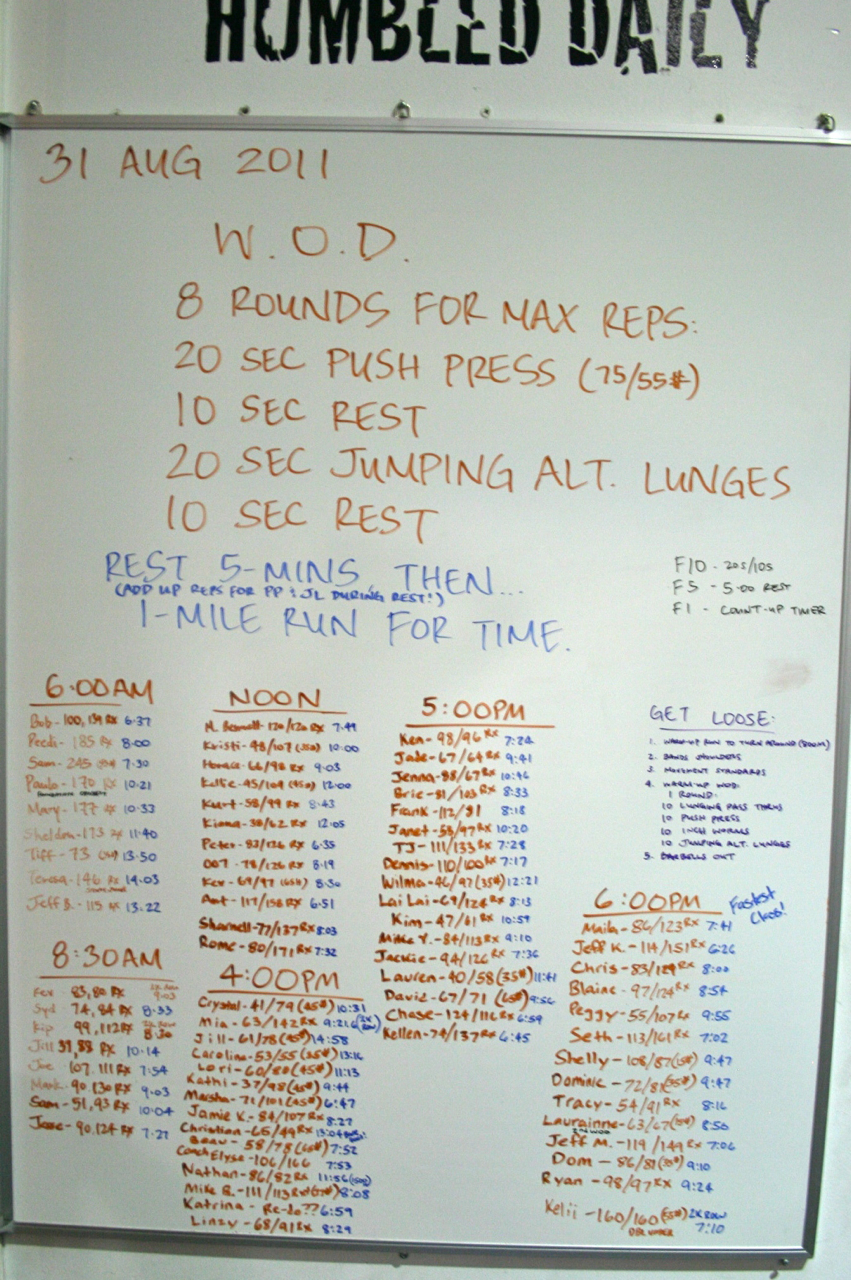 HUMBLED DAILY
31 AUG 2011
W.O.D.
8 ROUNDS FOR MAX REPS:
20 SEC PUSH PRESS (75/55#)
10 SEC REST
20 SEC JUMPING ALT. LUNGES
10 SEC REST
REST 5-MINS THEN...
(ADD UP REPS FOR PP & JL DURING REST!)
1-MILE RUN FOR TIME.
F10 - 20S/10S
F5 - 5:00 REST
F1 - COUNT-UP TIMER
6:00AM
Bob - 100, 139 RX 6:37
Peedi - 185 RX 8:00
Sam - 245 7:30
Paulo - 170 RX 10:21
Mary - 177 10:33
Sheldon - 173 11:40
Tiff - 73 13:50
Teresa - 146 RX 14:03
Jeff B. - 115 RX 13:22
8:30AM
Kev 83, 80 RX 9:03
Syd 74, 84 RX 8:33
Kip 99, 112 RX 8:30
Jill 39, 88 RX 10:14
Joe 107, 111 RX 7:54
Mark - 90, 130 RX 9:03
Sam - 51, 93 RX 10:04
Jose - 90, 124 RX 7:27
NOON
M. Bennett - 120/120 RX 7:49
Kristi - 48/107 (35#) 10:00
Horace - 66/98 RX 9:03
Kellie - 45/109 (45#) 12:00
Kurt - 58/99 RX 8:43
Kiona - 38/62 RX 12:05
Peter - 83/126 RX 6:35
007 - 78/126 RX 8:19
Kev - 69/97 (65#) 8:30
Art - 117/158 RX 6:51
Sharnell - 77/137 RX 8:03
Rome - 80/171 RX 7:32
4:00PM
Crystal - 41/79 (45#) 10:31
Mia - 63/142 RX 9:21
Jill - 61/78 (45#) 14:58
Carolina - 53/55 (35#) 13:16
Lori - 60/80 (45#) 11:13
Kathi - 37/98 (45#) 9:44
Marsha - 71/101 (45#) 6:47
Jamie K. - 84/107 RX 8:27
Christian - 65/49 RX 13:04
Beau - 58/78 (65#) 7:52
Coach Elyse - 106/166 7:53
Nathan - 86/82 RX 11:56
Mike B. - 111/113 RX 8:08
Katrina - Re-do?? 6:59
Linzy - 68/91 RX 8:29
5:00PM
Ken - 98/96 RX 7:24
Jade - 67/64 RX 9:41
Jenna - 88/67 RX 10:46
Brie - 81/103 RX 8:33
Frank - 112/91 8:18
Janet - 55/97 RX 10:20
TJ - 111/133 RX 7:28
Dennis - 110/100 RX 7:17
Wilma - 46/97 (35#) 12:21
Lai Lai - 69/124 RX 8:13
Kim - 47/61 RX 10:59
Mike Y. - 84/113 RX 9:10
Jackie - 94/126 RX 7:36
Lauren - 40/58 (35#) 11:41
David - 67/71 (65#) 9:56
Chase - 124/116 RX 6:59
Kellen - 74/137 RX 6:45
GET LOOSE:
1. WARM-UP RUN TO TURN AROUND (800M)
2. BANDS SHOULDERS
3. MOVEMENT STANDARDS
4. WARM-UP WOD:
1 ROUND:
10 LUNGING PASS THRUS
10 PUSH PRESS
10 INCH WORMS
10 JUMPING ALT. LUNGES
5. BARBELLS OUT
6:00PM
Fastest Class!
Maila - 86/123 RX 7:41
Jeff K. - 114/151 RX 6:26
Chris - 83/129 RX 8:00
Blaine - 97/124 RX 8:54
Peggy - 55/107 RX 9:55
Seth - 113/161 RX 7:02
Shelly - 108/87 9:47
Dominic - 72/81 9:47
Tracy - 54/91 RX 8:16
Laurainne - 63/67 8:50
Jeff M. - 119/149 RX 7:06
Dom - 86/81 9:10
Ryan - 98/97 RX 9:24
Kelii - 160/160 2K ROW 7:10